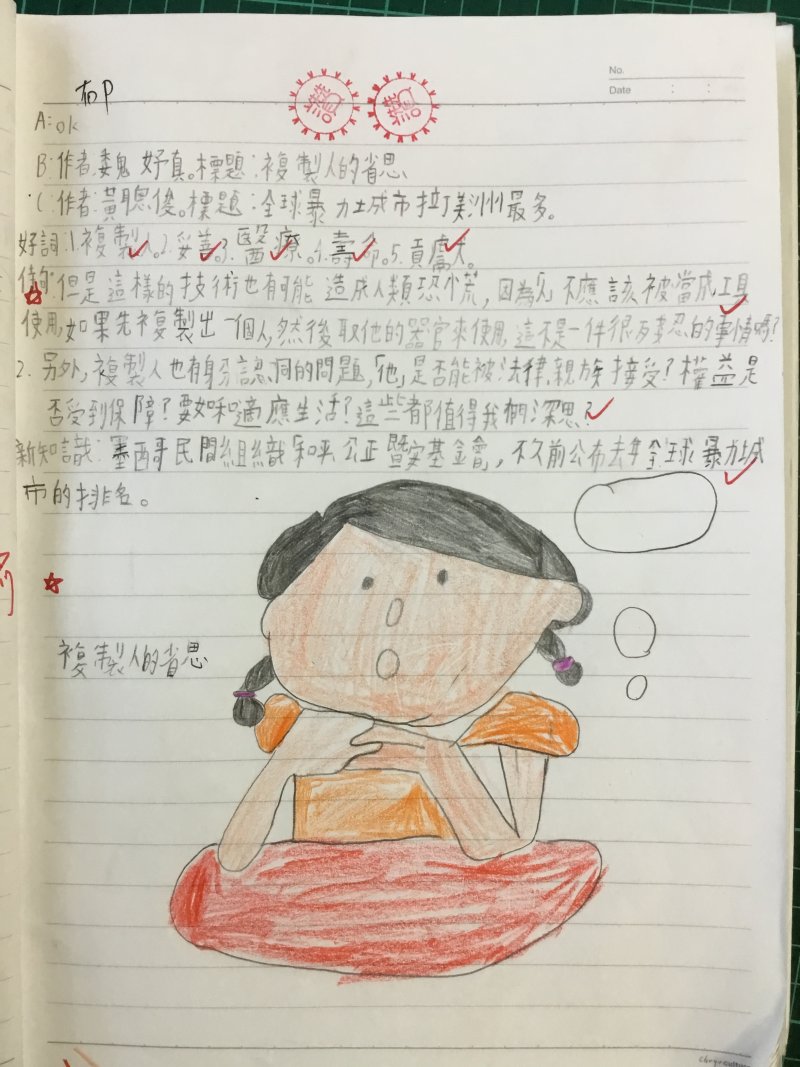 No.
Date : :
讚 讚
A:ok
B:作者:魏妤真。標題:複製人的省思
C:作者:黃聰俊。標題:全球暴力城市拉丁美洲最多。
好詞:1.複製人。2.妥善。3.醫療。4.壽命。5.貢獻。
佳句:但是這樣的技術也有可能造成人類恐慌,因為「人」不應該被當成工具
使用,如果先複製出一個人,然後取他的器官來使用,這不是一件很殘忍的事情嗎?
2.另外,複製人也有身分認同的問題,「他」是否能被法律,親族接受?權益是
否受到保障?要如何適應生活?這些都值得我們深思?
新知識:墨西哥民間組織「和平公正暨安基金會」,不久前公布去年全球暴力城
市的排名。
複製人的省思